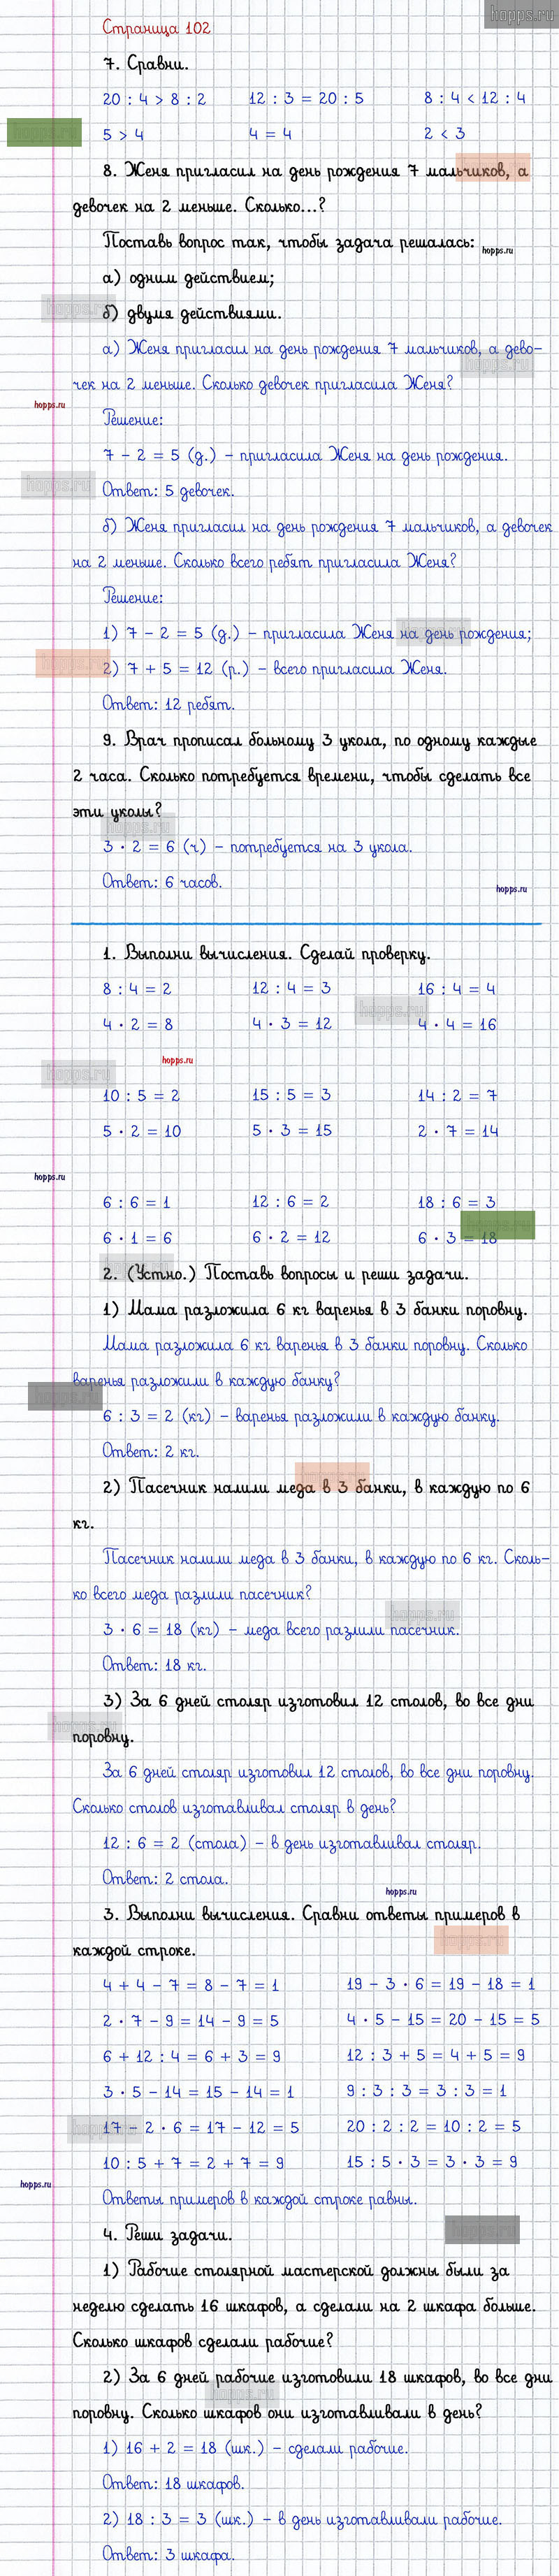 hopps.ru
Страница 102
7. Сравни.
20 : 4 > 8 : 2 12 : 3 = 20 : 5 8 : 4 < 12 : 4
hopps.ru
5 > 4 4 = 4 2 < 3
8. Женя пригласил на день рождения 7 мальчиков, а
девочек на 2 меньше. Сколько...?
Поставь вопрос так, чтобы задача решалась:
hopps.ru
а) одним действием;
б) двумя действиями.
hopps.ru
а) Женя пригласил на день рождения 7 мальчиков, а дево-
hopps.ru
чек на 2 меньше. Сколько девочек пригласила Женя?
hopps.ru
Решение:
7 - 2 = 5 (д.) - пригласила Женя на день рождения.
hopps.ru
Ответ: 5 девочек.
б) Женя пригласил на день рождения 7 мальчиков, а девочек
на 2 меньше. Сколько всего ребят пригласила Женя?
Решение:
1) 7 - 2 = 5 (д.) - пригласила Женя на день рождения;
hopps.ru
2) 7 + 5 = 12 (р.) - всего пригласила Женя.
Ответ: 12 ребят.
9. Врач прописал больному 3 укола, по одному каждые
2 часа. Сколько потребуется времени, чтобы сделать все
эти уколы?
hopps.ru
3 · 2 = 6 (ч) - потребуется на 3 укола.
Ответ: 6 часов.
hopps.ru
1. Выполни вычисления. Сделай проверку.
8 : 4 = 2 12 : 4 = 3 16 : 4 = 4
hopps.ru
4 · 2 = 8 4 · 3 = 12 4 · 4 = 16
hopps.ru
hopps.ru
10 : 5 = 2 15 : 5 = 3 14 : 2 = 7
5 · 2 = 10 5 · 3 = 15 2 · 7 = 14
hopps.ru
6 : 6 = 1 12 : 6 = 2 18 : 6 = 3
hopps.ru
6 · 1 = 6 6 · 2 = 12 6 · 3 = 18
hopps.ru
2. (Устно.) Поставь вопросы и реши задачи.
1) Мама разложила 6 кг варенья в 3 банки поровну.
Мама разложила 6 кг варенья в 3 банки поровну. Сколько
варенья разложили в каждую банку?
hopps.ru
6 : 3 = 2 (кг) - варенья разложили в каждую банку.
Ответ: 2 кг.
2) Пасечник налили меда в 3 банки, в каждую по 6
кг.
Пасечник налили меда в 3 банки, в каждую по 6 кг. Сколь-
ко всего меда разлили пасечник?
hopps.ru
3 · 6 = 18 (кг) - меда всего разлили пасечник.
Ответ: 18 кг.
3) За 6 дней столяр изготовил 12 столов, во все дни
hopps.ru
поровну.
За 6 дней столяр изготовил 12 столов, во все дни поровну.
Сколько столов изготавливал столяр в день?
12 : 6 = 2 (стола) - в день изготавливал столяр.
Ответ: 2 стола.
hopps.ru
3. Выполни вычисления. Сравни ответы примеров в
каждой строке.
4 + 4 - 7 = 8 - 7 = 1 19 - 3 · 6 = 19 - 18 = 1
2 · 7 - 9 = 14 - 9 = 5 4 · 5 - 15 = 20 - 15 = 5
6 + 12 : 4 = 6 + 3 = 9 12 : 3 + 5 = 4 + 5 = 9
3 · 5 - 14 = 15 - 14 = 1 9 : 3 : 3 = 3 : 3 = 1
hopps.ru
17 - 2 · 6 = 17 - 12 = 5 20 : 2 : 2 = 10 : 2 = 5
10 : 5 + 7 = 2 + 7 = 9 15 : 5 · 3 = 3 · 3 = 9
hopps.ru
Ответы примеров в каждой строке равны.
hopps.ru
4. Реши задачи.
1) Рабочие столярной мастерской должны были за
неделю сделать 16 шкафов, а сделали на 2 шкафа больше.
Сколько шкафов сделали рабочие?
2) За 6 дней рабочие изготовили 18 шкафов, во все дни
hopps.ru
поровну. Сколько шкафов они изготавливали в день?
1) 16 + 2 = 18 (шк.) - сделали рабочие.
Ответ: 18 шкафов.
2) 18 : 3 = 3 (шк.) - в день изготавливали рабочие.
Ответ: 3 шкафа.